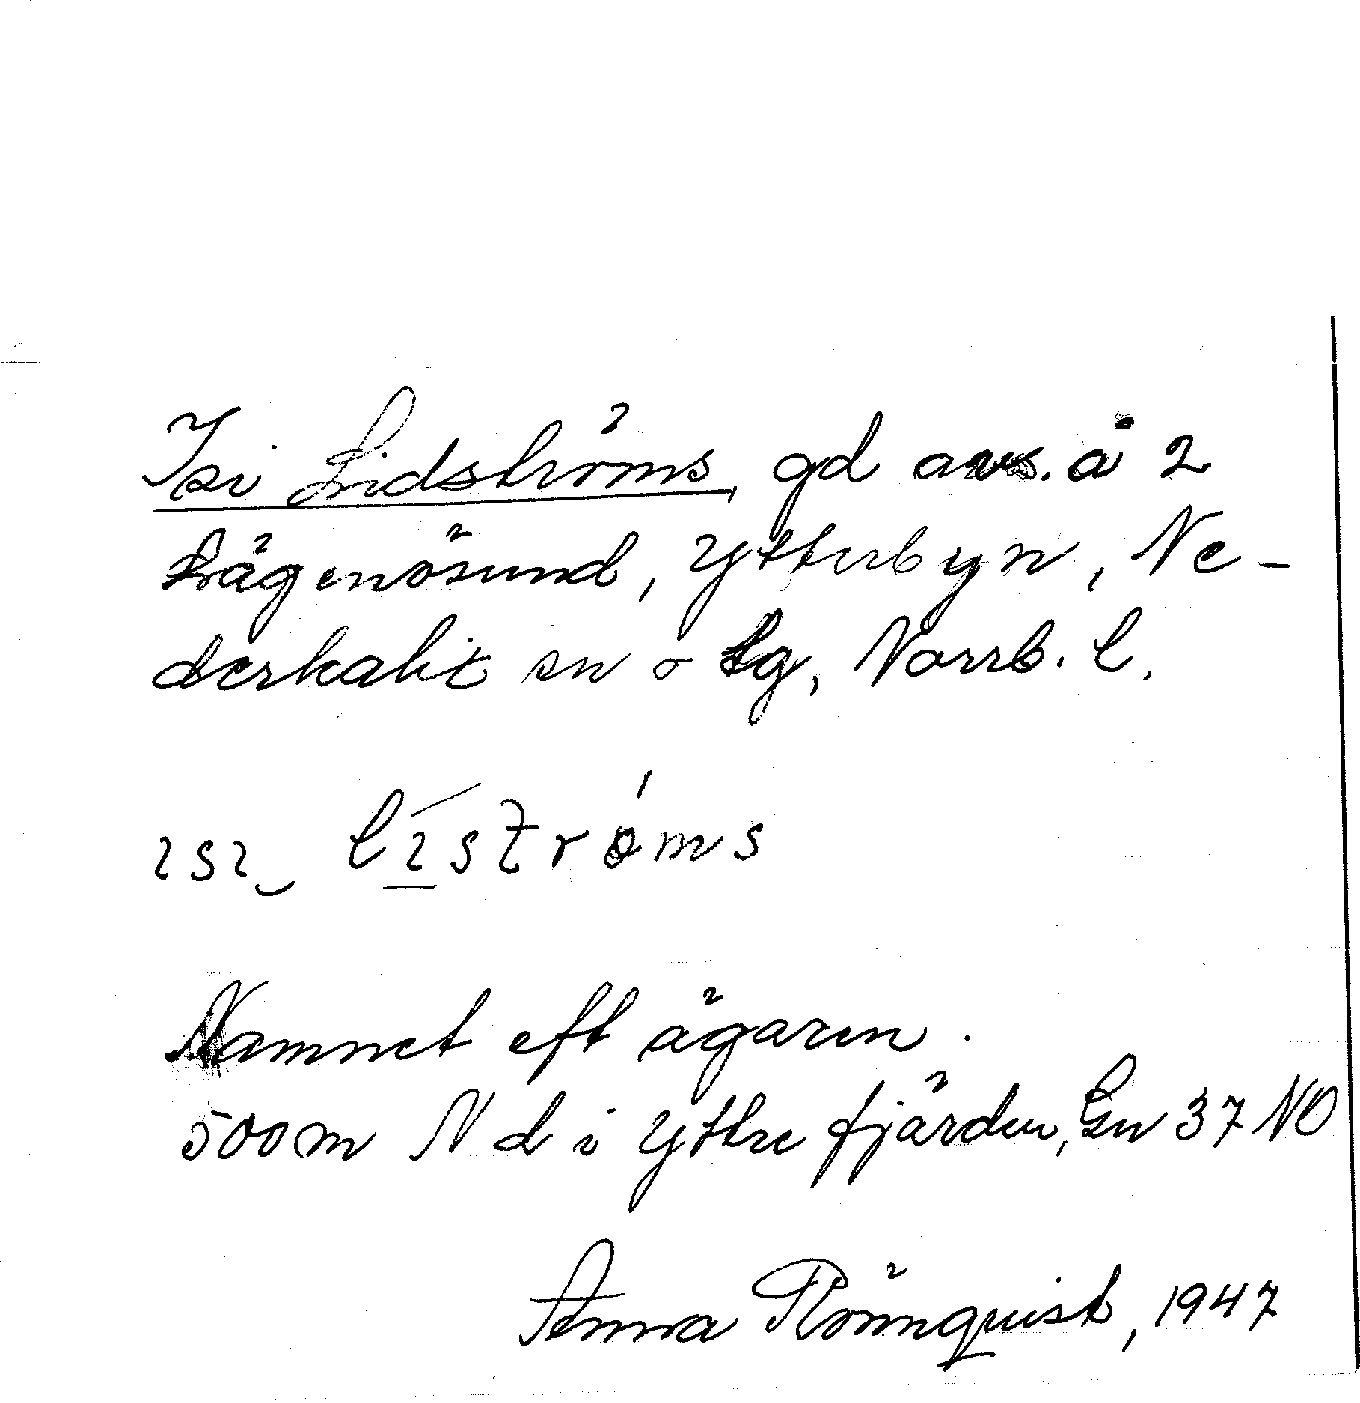 Isi Lidströms, gd avs. å 2
Frägnösund, Ytterbyn, Ne-
derkalix sn o tg, Norrb. l.
ɪsɪ‿ lɪ́ströms
Namnet eft ägaren.
500 m N d i Yttre fjärden, Gn 37 NO
Anna Rönnquist, 1947